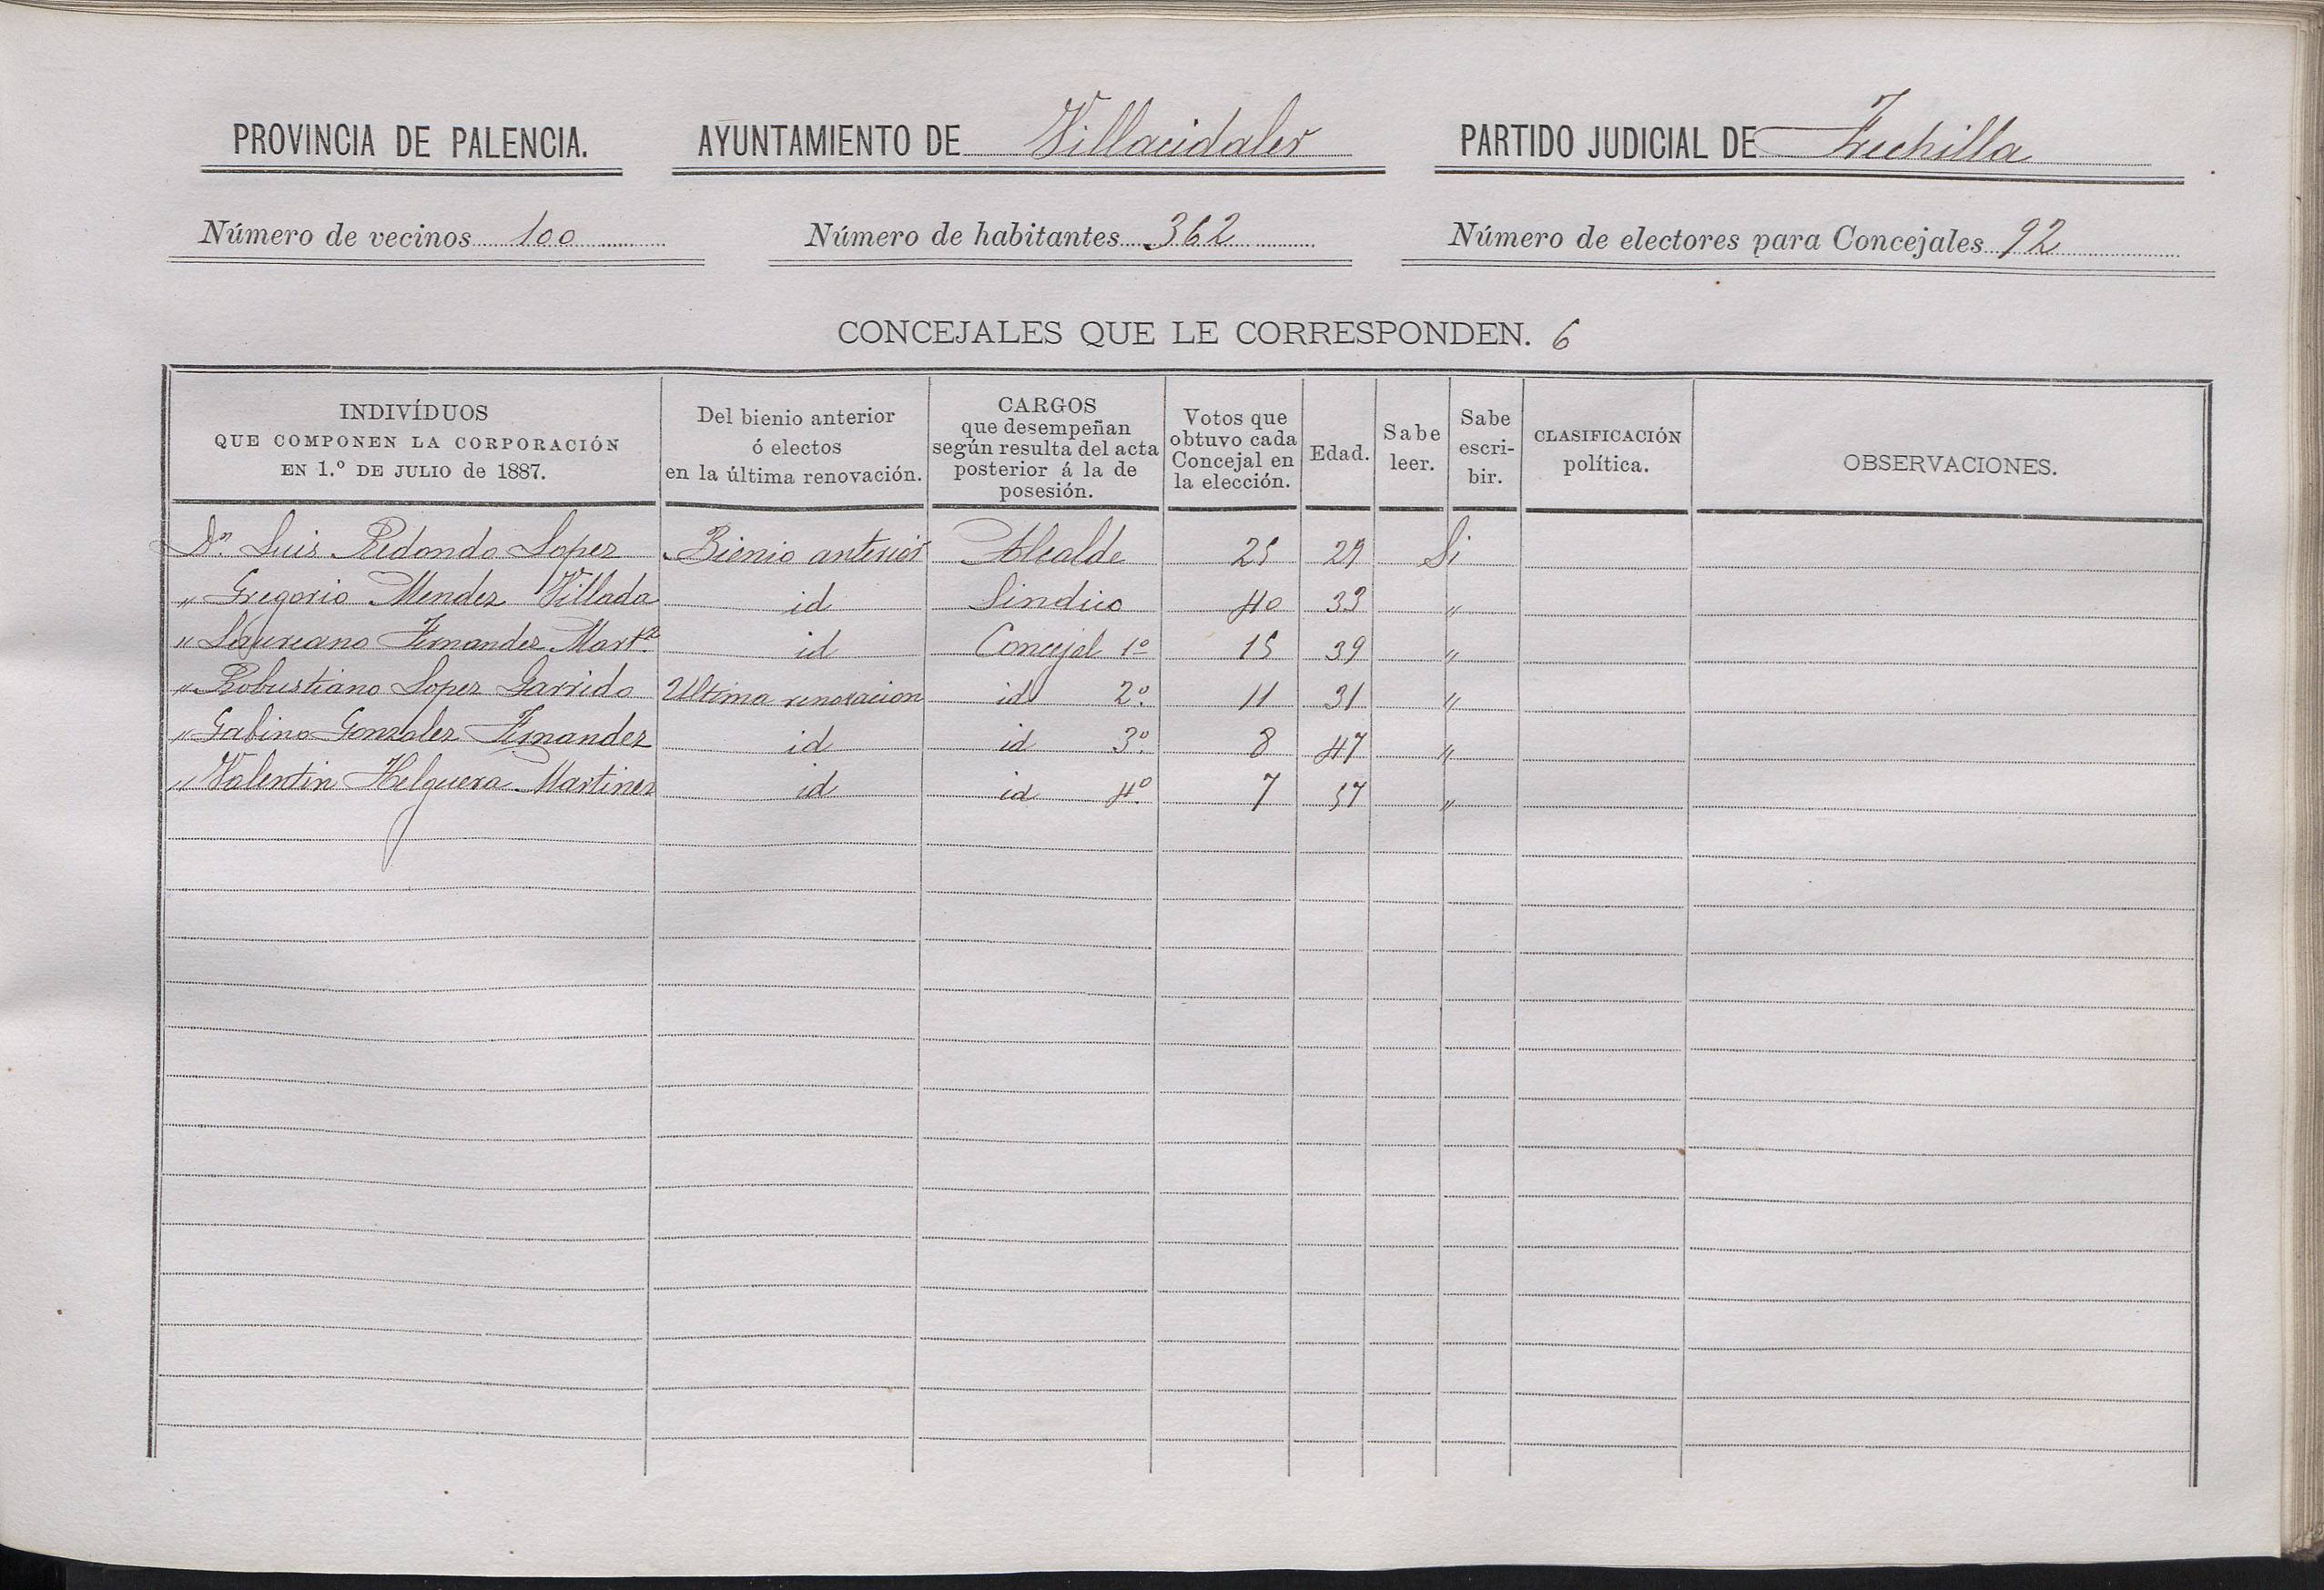 PROVINCIA DE PALENCIA. AYUNTAMIENTO DE Villacidaler PARTIDO JUDICIAL DE Frechilla
Número de vecinos 100 Número de habitantes 362 Número de electores para Concejales 92
CONCEJALES QUE LE CORRESPONDEN. 6
INDIVÍDUOS
QUE COMPONEN LA CORPORACIÓN
EN 1.º DE JULIO de 1887.
Del bienio anterior
ó electos
en la última renovación.
CARGOS
que desempeñan
según resulta del acta
posterior á la de
posesión.
Votos que
obtuvo cada
Concejal en
la elección.
Edad.
Sabe
leer.
Sabe
escri-
bir.
CLASIFICACIÓN
política.
OBSERVACIONES.
Dn. Luis Redondo Lopez Bienio anterior Alcalde 25 29 Si
" Gregorio Mendez Villada id Sindico 40 33 "
" Laureano Fernandez Martz. id Concejal 1º 15 39 "
" Robustiano Lopez Garrido Ultima renovacion id 2º. 11 31 "
" Gabino Gonzalez Fernandez id id 3º. 8 47 "
" Valentin Helguera Martinez id id 4º. 7 57 "